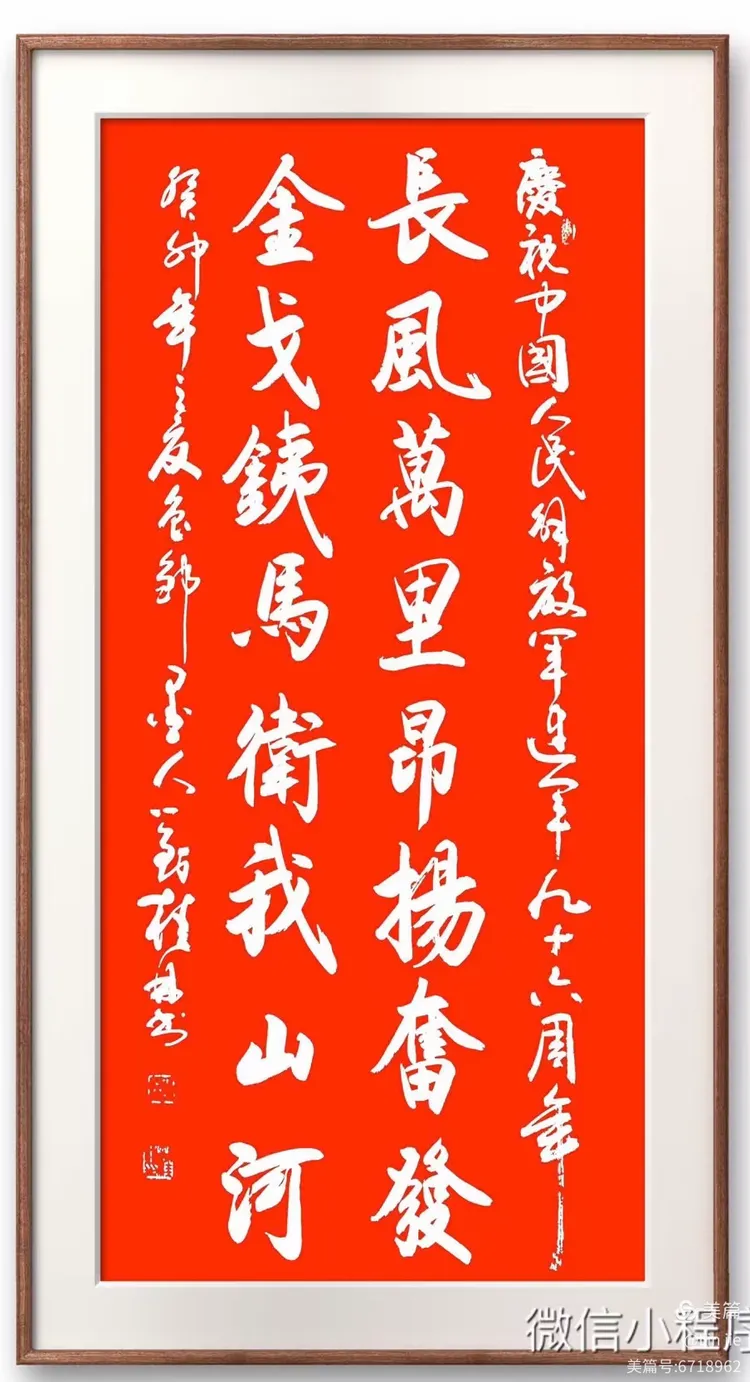 慶祝中國人民解放軍建軍九十六周年
長風萬里昂揚奮發
金戈鐵馬衛我山河
癸卯年之夏 墨人 桂林书
美篇
微信小程序
美篇号:6718962